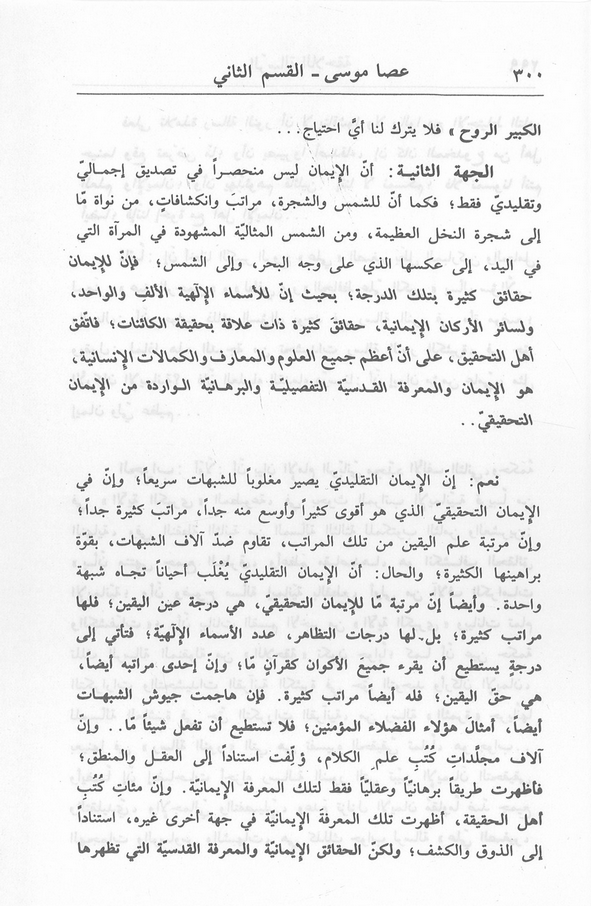 ٣٠٠ عصا موسى - القسم الثاني
الكبير الروح» فلا يترك لنا أيَّ احتياج...
الجهة الثانية: أنّ الإيمان ليس منحصراً في تصديق إجماليّ
وتقليديّ فقط؛ فكما أنّ للشمس والشجرة، مراتبَ وانكشافاتٍ، من نواة مّا
إلى شجرة النخل العظيمة، ومن الشمس المثاليّة المشهودة في المرآة التي
في اليد، إلى عكسها الذي على وجه البحر، وإلى الشمس؛ فإنّ للإيمان
حقائق كثيرة بتلك الدرجة؛ بحيث إنّ للأسماء الإلهية الألف والواحد،
ولسائر الأركان الإيمانية، حقائقَ كثيرة ذات علاقة بحقيقة الكائنات؛ فاتّفق
أهل التحقيق، على أنّ أعظم جميع العلوم والمعارف والكمالات الإنسانية،
هو الإيمان والمعرفة القدسيّة التفصيليّة والبرهانيّة الواردة من الإيمان
التحقيقيّ..
نعم: إنّ الإيمان التقليديّ يصير مغلوباً للشبهات سريعاً؛ وإنّ في
الإيمان التحقيقيّ الذي هو أقوى كثيراً وأوسع منه جداً، مراتبَ كثيرة جداً؛
وإنّ مرتبة علم اليقين من تلك المراتب، تقاوم ضدّ آلاف الشبهات، بقوّة
براهينها الكثيرة؛ والحال: أنّ الإيمان التقليديّ يُغْلَب أحياناً تجاه شبهة
واحدة. وأيضاً إنّ مرتبة مّا للإيمان التحقيقي، هي درجة عين اليقين؛ فلها
مراتب كثيرة؛ بل لها درجات التظاهر، عدد الأسماء الإلهيّة؛ فتأتي إلى
درجةٍ يستطيع أن يقرء جميعَ الأكوان كقرآنٍ مّا؛ وإن إحدى مراتبه أيضاً،
هي حقّ اليقين؛ فله أيضاً مراتب كثيرة. فإن هاجمت جيوش الشبهات
أيضاً، أمثالَ هؤلاء الفضلاء المؤمنين؛ فلا تستطيع أن تفعل شيئاً مّا.. وإنّ
آلاف مجلّداتِ كُتُبِ علمِ الكلام، وُلّفت استناداً إلى العقل والمنطق؛
فأظهرت طريقاً برهانيّاً وعقليّاً فقط لتلك المعرفة الإيمانيّة. وإنّ مئاتِ كُتُبِ
أهل الحقيقة، أظهرت تلك المعرفة الإيمانيّة في جهة أخرى غيره، استناداً
إلى الذوق والكشف؛ ولكنّ الحقائق الإيمانيّة والمعرفة القدسيّة التي تظهرها